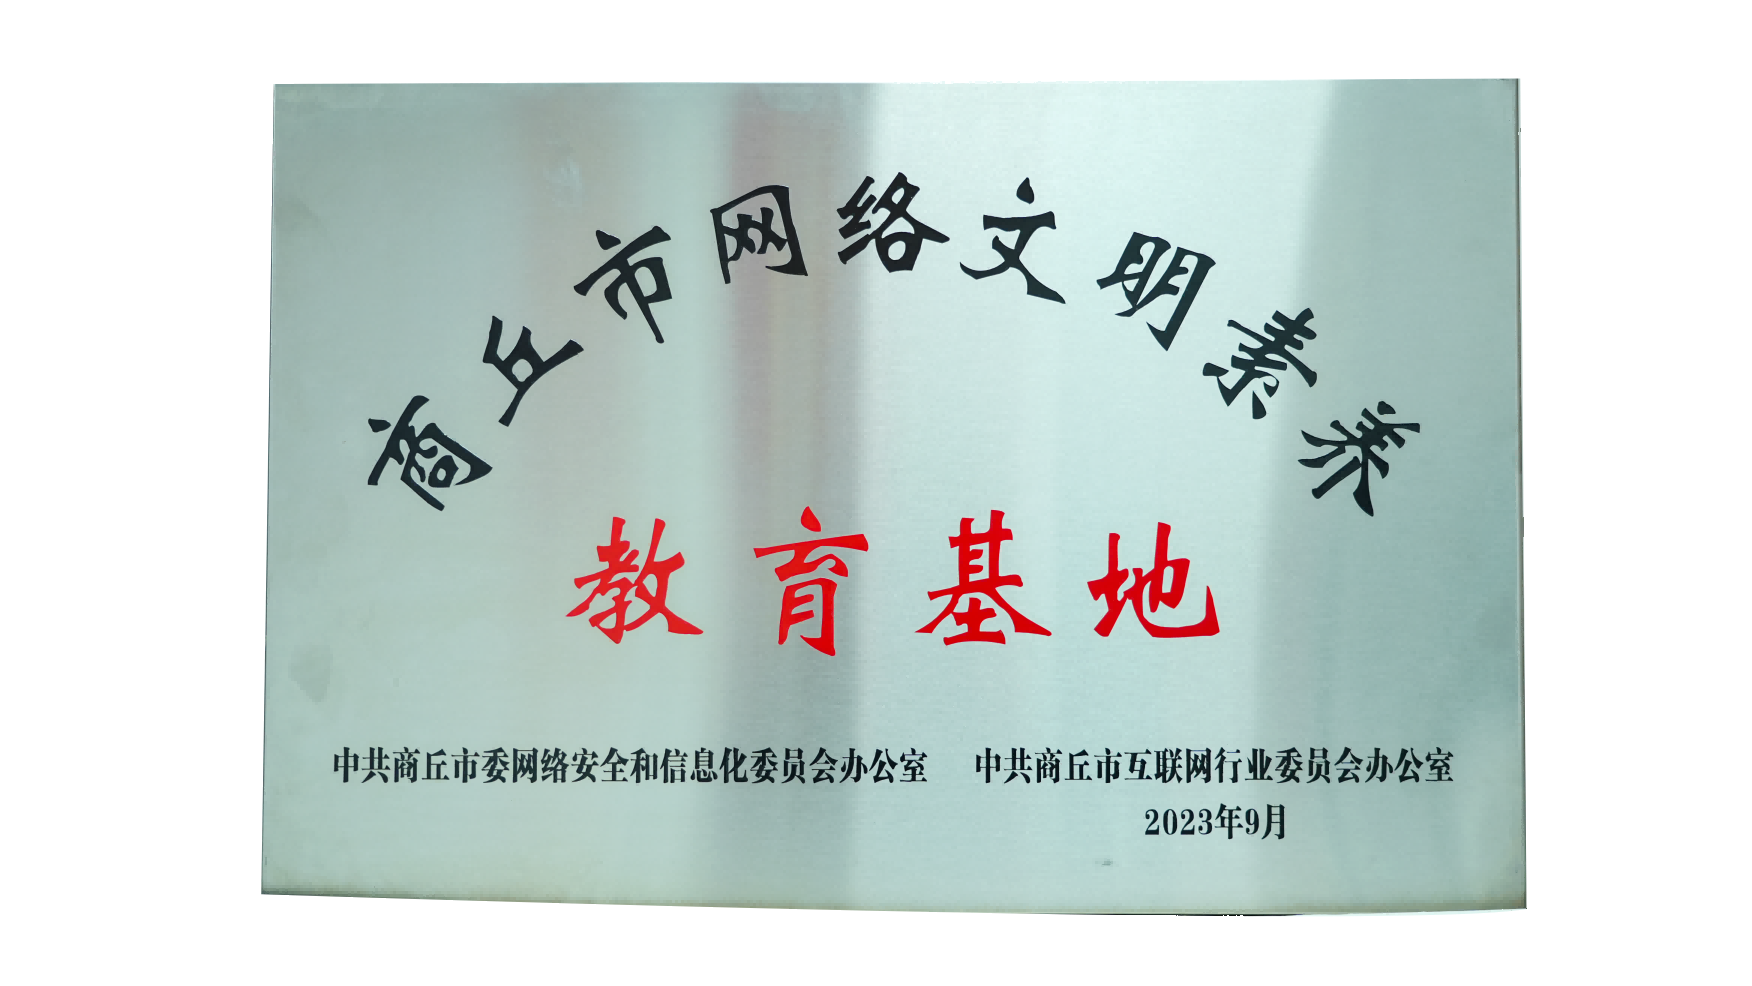 商丘市网络文明素养
教育基地
中共商丘市委网络安全和信息化委员会办公室 中共商丘市互联网行业委员会办公室
2023年9月